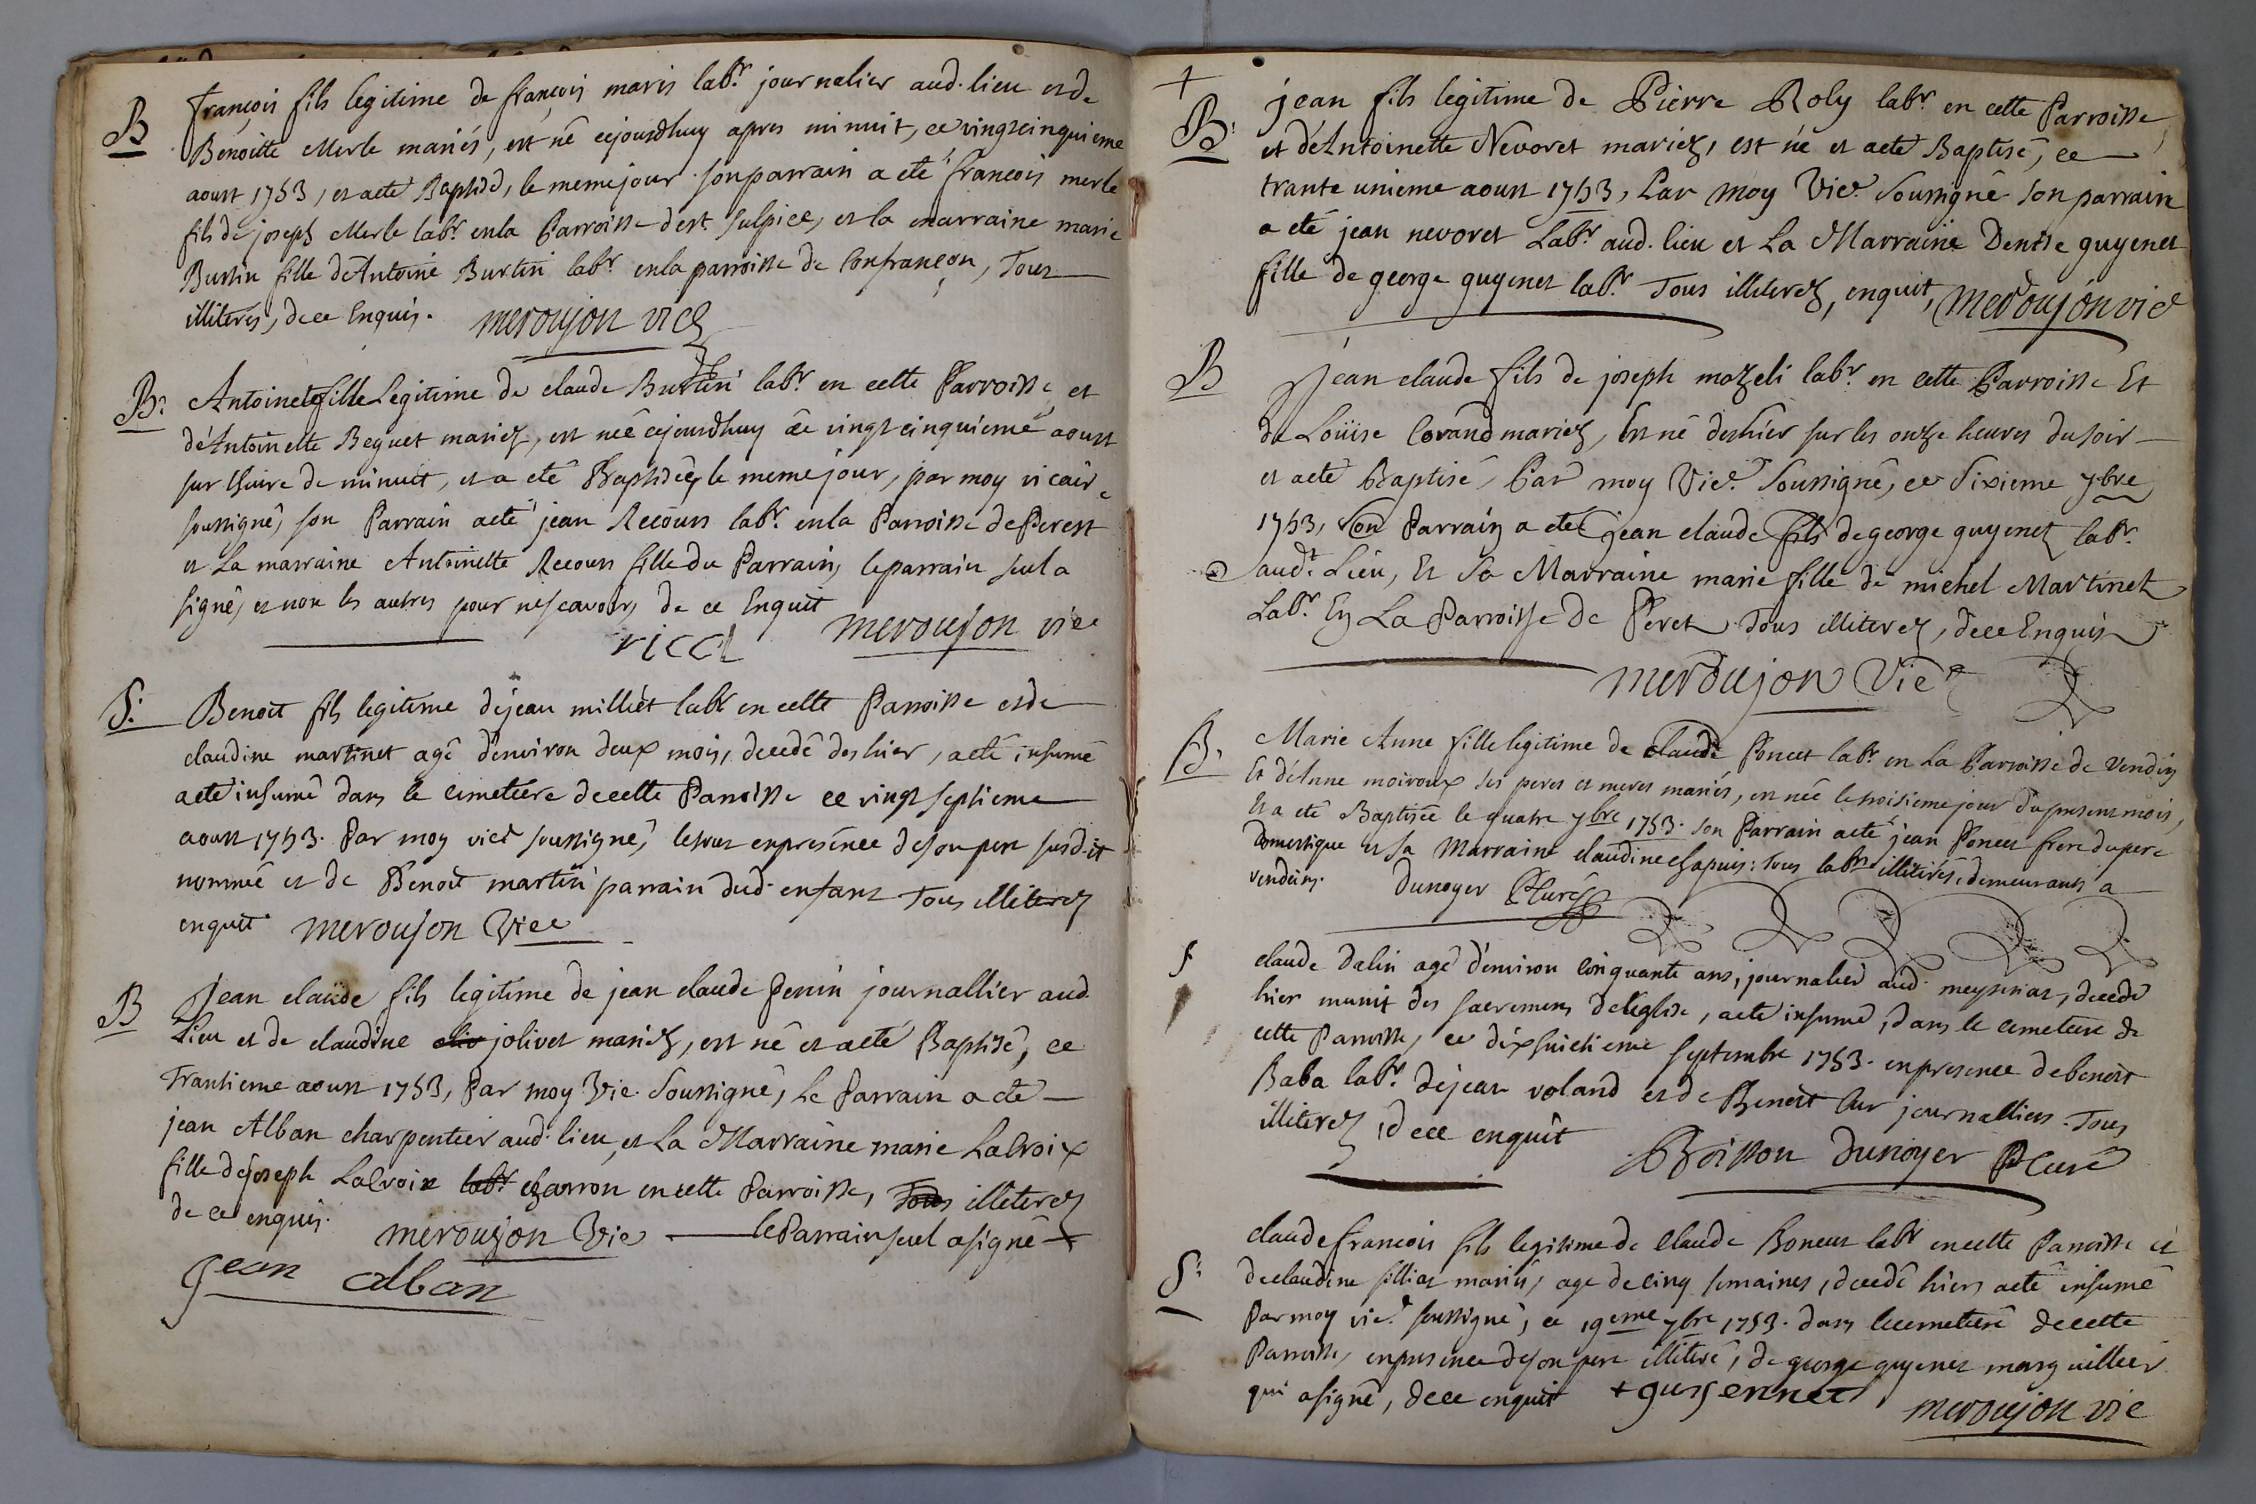 B
françois fils legitime de françois maris labr. journalier aud. lieu et de
Benoitte Merle mariés, est né cejourdhuy apres minuit, ce vingt cinquieme
aoust 1753, et a eté Baptisé, le meme jour. son parrain a eté françois merle
fils de joseph Merle labr. en la Parroisse de st. sulpice, et la marraine marie
Burtin fille d'Antoine Burtin labr. en la parroisse de Confrançon, Tous
illiteres, de ce Enquis. meroujon vic
B.
Antoinete fille Legitime de claude Burtin labr. en cette Parroisse, et
d'Antoinette Beguet mariez, est née cejourdhuy ce vingt cinquieme aoust
sur l'huire de minuit, et a eté Baptisée, le meme jour, par moy vicaire
soussigné, son Parrain a eté jean Recours labr. en la Parroisse de Perest
et La marraine Antoinette Recours fille du Parrain, le parrain seul a
signé, et non les autres pour ne scavoir, de ce Enquit
meroujon vic
S.
Benoit fils legitime de jean milliet labr. en cette Parroisse et de
claudine martinet agé d'environ deux mois, decedé des hier, a eté inhumé
a eté inhumé dans le cimetiere de cette Parroisse ce vingt septieme
aoust 1753. Par moy vice soussigné, le tout en presence de son pere susdit
nommé et de Benoit martin parrain dud. enfant Tous illiterez
enquit meroujon Vice
B
Jean claude fils legitime de jean claude Penin journallier aud.
Lieu et de claudine jolivet mariez, est né et a eté Baptisé, ce
Trantieme aoust 1753, Par moy Vic. Soussigné, Le Parrain a eté
jean Alban charpentier aud. lieu, et La Marraine marie Lacroix
fille de joseph Lacroix labr. charron en cette Parroisse, Tous illiterez
de ce enquis. meroujon Vic le Parrain seul a signé
Jean alban
B.
jean fils legitime de Pierre Roly labr. en cette Parroisse
et d'Antoinette Nevoret mariez, est né et a eté Baptisé, ce
trante unieme aoust 1753, Par moy Vic. Soussigné son parrain
a eté jean nevoret Labr. aud. lieu et La Marraine Denise guyenet
fille de george guyenet labr. Tous illiterez, enquit, meroujon vic
B
Jean claude fils de joseph mozeli labr. en cette Parroisse Et
de Loüise Corand mariez, Est né deshier sur les onze heures du soir
et a eté Baptisé, Par moy Vic. Soussigné, ce Sixieme 7bre
1753, Son Parrain a eté jean claude fils de george guyenet labr.
audt. Lieu, Et Sa Marraine marie fille de michel Martinet
Labr. En La Parroisse de Peret Tous illiterez, de ce Enquis
meroujon Vic
B.
Marie Anne fille legitime de claude Poncet labr. en La Parroisse de Vendin
Et d'Anne moiroux ses peres et meres mariés, est née le troisieme jour du present mois,
Et a eté Baptisée le quatre 7bre 1753. son Parrain a eté jean Poncet frere du pere
Domestique et sa Marraine claudine Chapuis: Tous labrs illitérés, demeurants a
vendeins. Dunoyer Pcuré
S
claude dalin agé d'environ cinquante ans, journalier aud. meyseriat, decedé
hier munit des sacremens de l'eglise, a eté inhumé, dans le cimetiere de
cette Parroisse, ce dixhuictieme septembre 1753. en presence de benoit
Baba labr. de jean voland et de Benoit Cur journalliers. Tous
illiterez, de ce enquit Boisson Dunoyer Pcuré
S.
claude françois fils legitime de Claude Boneur labr. en cette Parroisse et
de claudine filliat mariés, agé de cinq semaines, decedé hier, a eté inhumé
Par moy vic. soussigné, ce 19eme 7bre 1753. dans le cemetiere de cette
Parroisse, en presence de son pere illiteré, de george guyenet marguillier
qui a signé, de ce enquit + guyennet
meroujon vic